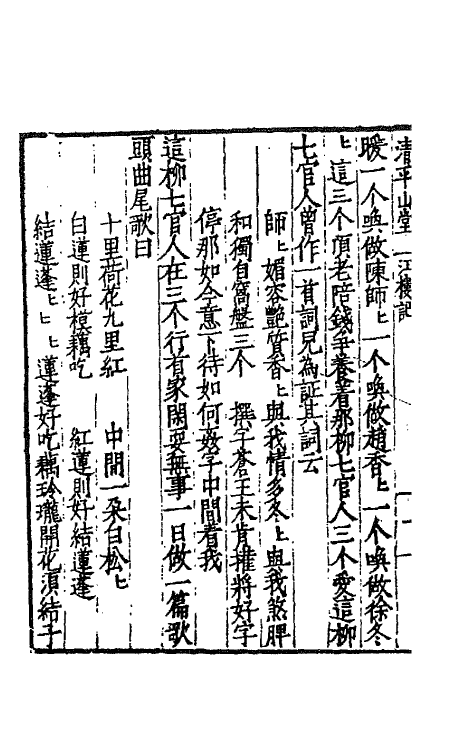 清平山堂 一 江樓記
暖一个喚做陳師〻一个喚做趙香〻一个喚做徐冬
〻這三个頂老陪錢爭養着那柳七官人三个愛這柳
七官人曾作一首詞兒為証其詞云
師〻媚容艷質香〻與我情多冬〻與我煞脾
和獨自窩盤三个 撰字蒼王未肯權將好字
停那如今意下待如何姦字中間着我
這柳七官人在三个行首家閑耍無事一日做一篇歌
頭曲尾歌曰
十里荷花九里紅 中間一朶白松〻
白蓮則好摸藕吃 紅蓮則好結蓮蓬
結蓮蓬〻〻〻蓮蓬好吃藕玲瓏開花須結子